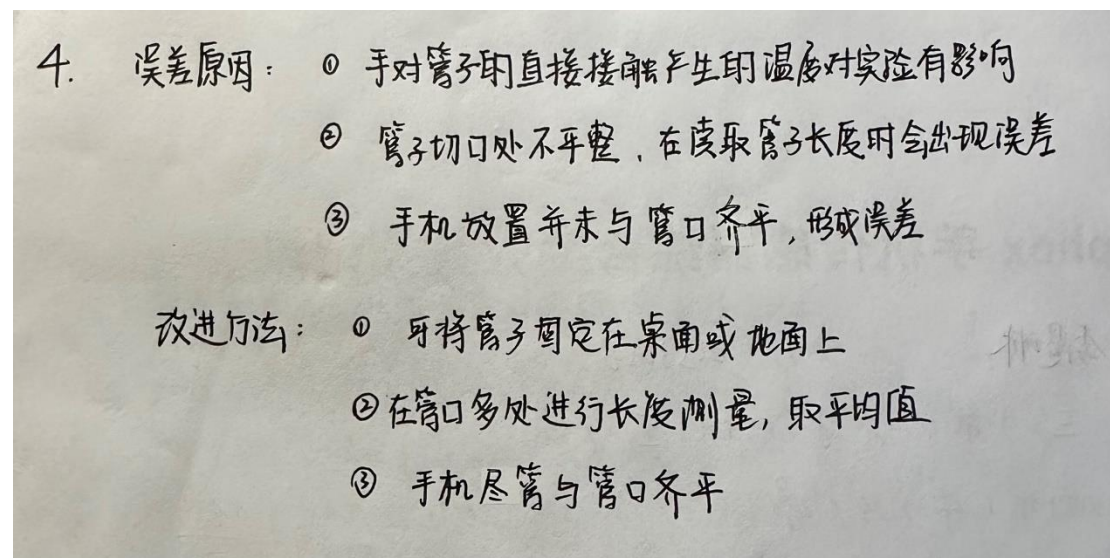 4. 误差原因: ① 手对管子的直接接触产生的温度对实验有影响
② 管子切口处不平整,在读取管子长度时会出现误差
③ 手机放置并未与管口齐平,形成误差
改进方法: ① 可将管子固定在桌面或地面上
② 在管口多处进行长度测量,取平均值
③ 手机尽管与管口齐平